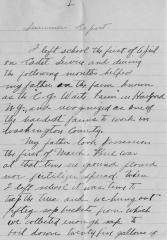 1
Summer Report
I left school the first of April
on Cadet Service and during
the following months helped
my father on the farm known
as the C. G. Watt Farm in Hartford
N.Y., and recognized as one of
the hardest farms to work in
Washington County.
My father took possession
the first of March. There was
at that time no ground plowed
nor fertilizer spread. When
I left school it was time to
tap the trees and we hung out
fifty sap buckets from which
we collected enough sap to
boil down twenty five gallons of